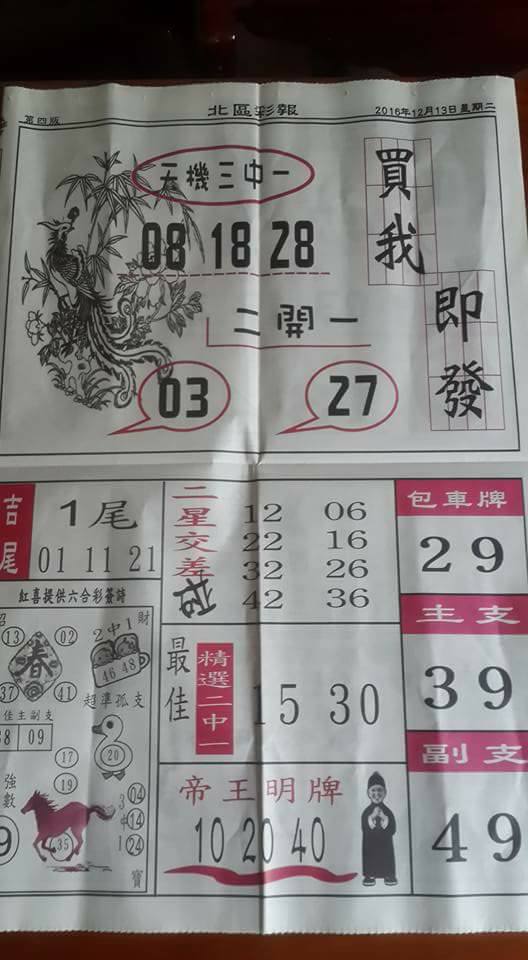 第四版 北區彩報 2016年12月13日星期二
天機三中一
08 18 28
二開一
03 27
買我
即發
吉尾
1尾
01 11 21
二星交差
12 06
22 16
32 26
42 36
包車牌
29
紅喜提供六合彩簽詩
財
13 02
春
37 41
2中1
46 48
佳主副支
09
超準孤支
20
17
19
強數
35
3中1
04
14
24
寶
最佳
精選二中一
15 30
主支
39
帝王明牌
10 20 40
副支
49